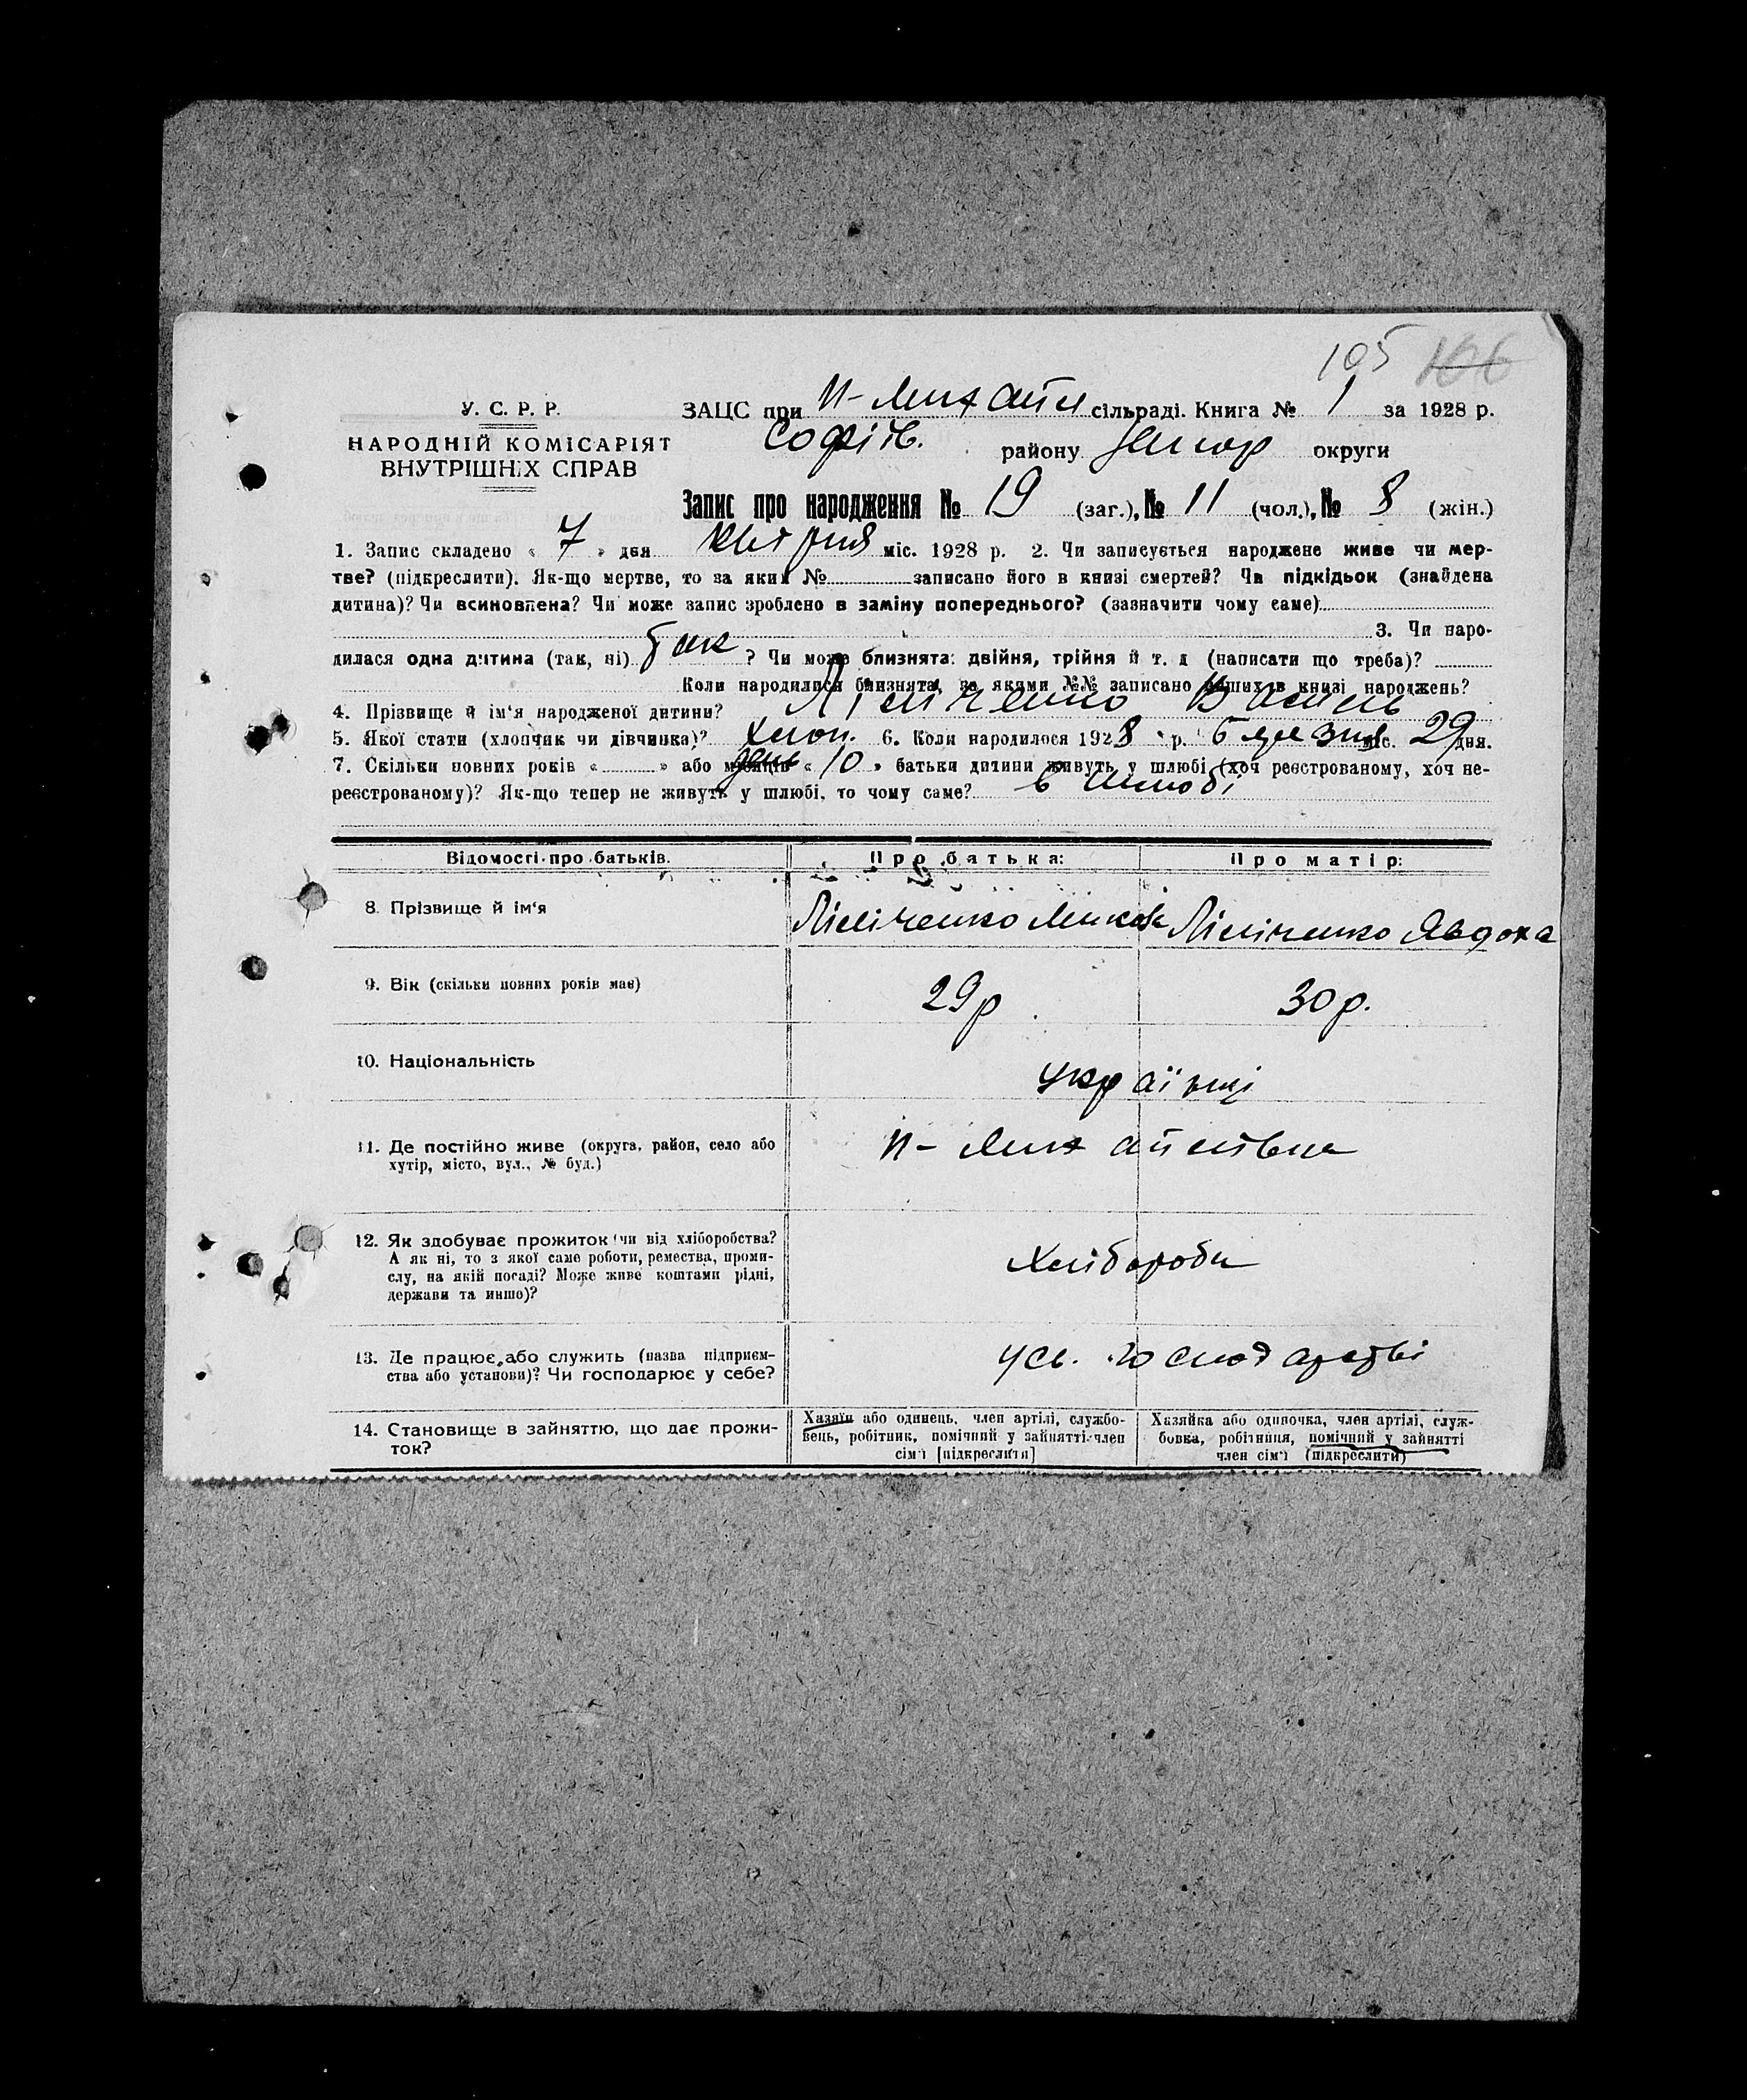 105 106
У. С. Р. Р.
НАРОДНІЙ КОМІСАРІЯТ
ВНУТРІШНІХ СПРАВ
ЗАЦС при Н-Михайл сільраді. Книга № 1 за 1928 р.
Софіїв. району округи
Запис про народження № 19 (заг.), № 11 (чол.), № 8 (жін.)
1. Запис складено « 7 » дня квітня міс. 1928 р. 2. Чи записується народжене живе чи мер-
тве? (підкреслити). Як-що мертве, то за яким № записано його в книзі смертей? Чи підкідьок (знайдена
дитина)? Чи всиновлена? Чи може запис зроблено в заміну попереднього? (зазначити чому саме)
3. Чи наро-
дилася одна дитина (так, ні) так ? Чи може близнята: двійня, трійня й т. д (написати що треба)?
Коли народилися близнята, за якими №№ записано инших в книзі народжень?
4. Прізвище й ім'я народженої дитини? Лісіченко Василь
5. Якої стати (хлопчик чи дівчинка)? Хлоп. 6. Коли народилося 1928 р. березня міс. 29 дня.
7. Скільки повних років « » або місяців день « 10 » батьки дитини живуть у шлюбі (хоч реєстрованому, хоч не-
реєстрованому)? Як-що тепер не живуть у шлюбі, то чому саме? в шлюбі
Відомості про батьків. Про батька: Про матір:
8. Прізвище й ім'я Лісіченко Лісіченко Явдоха
9. Вік (скільки повних років має) 29 р 30 р.
10. Національність українці
11. Де постійно живе (округа, район, село або
хутір, місто, вул., № буд.) Н-Михайлівка
12. Як здобуває прожиток (чи від хліборобства?
А як ні, то з якої саме роботи, ремества, проми-
слу, на якій посаді? Може живе коштами рідні,
держави та инше)? Хлібороби
13. Де працює або служить (назва підприєм-
ства або установи)? Чи господарює у себе? у св. господарстві
14. Становище в зайняттю, що дає прожи-
ток?
Хазяїн або одинець, член артілі, службо-
вець, робітник, помічний у зайнятті член
сім'ї [підкреслити]
Хазяйка або одиночка, член артілі, служ-
бовка, робітниця, помічний у зайнятті
член сім'ї (підкреслити)